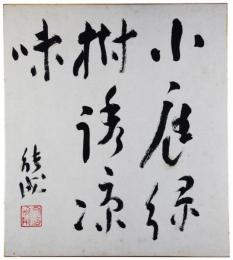 小庭緑
樹誘涼
味
能成